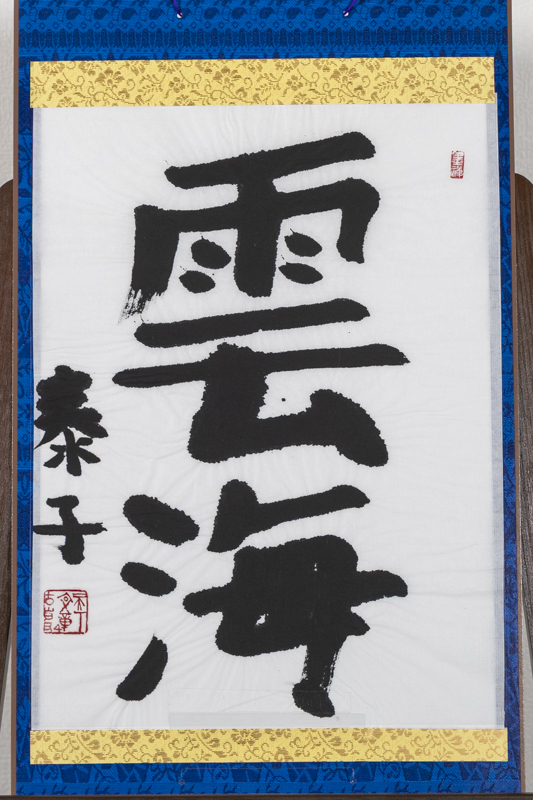 雲海
泰子